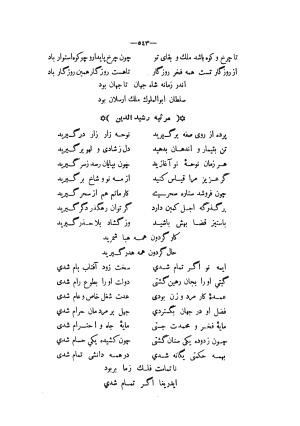 —٥٤٣—
تا چرخ و کوه باشد ملک و بقای تو چون چرخ پایدار و چو کوه استوار باد
از روزگار تست همه فخر روزگار تا هست روزگار همین روزگار باد
اندر زمانه شاه جهان تا جهان بود
سلطان ابوالملوک ملک ارسلان بود
(مرثیه رشیدالدین)
پرده از روی صفه برگیرید نوحه زار زار در گیرید
تن بتیمار و اندهان بدهید دل ز شادی و لهو برگیرید
هر زمان نوحه نو آغازید چون بپایان رسد ز سر گیرید
گر عزیز مرا قیاس کنید از مه نو و شاخ بر گیرید
چون فروشد ستاره سحریست کار ماتم هم از سحر گیرید
بر گذرگه اجل کمین دارد گر توان رهگذر دگر گیرید
با ستیز قضا بهش باشید وز گشاد بلا حذر گیرید
کار گردون همه هبا شمرید
حال گردون همه هدر گیرید
ایمه نو اگر تمام شدی سخت زود آفتاب بام شدی
گیتی او را بجان رهین گشتی دولت او را بطوع رام شدی
عمده کار مرد و زن بودی عدت شغل خاص و عام شدی
فضل او در جهان بگستردی جهل بر مردمان حرام شدی
مایه فخر و محمدت جستی مایه جاه و احترام شدی
چون زدوده یکی سنان گشتی چون کشیده یکی حسام شدی
بهمه حکمتی یگانه شدی در همه دانشی تمام شدی
ناتمامت فلک ز ما بربود
ای دریغا اگر تمام شدی